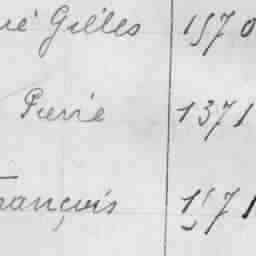 ré Gilles 1570
Pierre 1371
François 1571